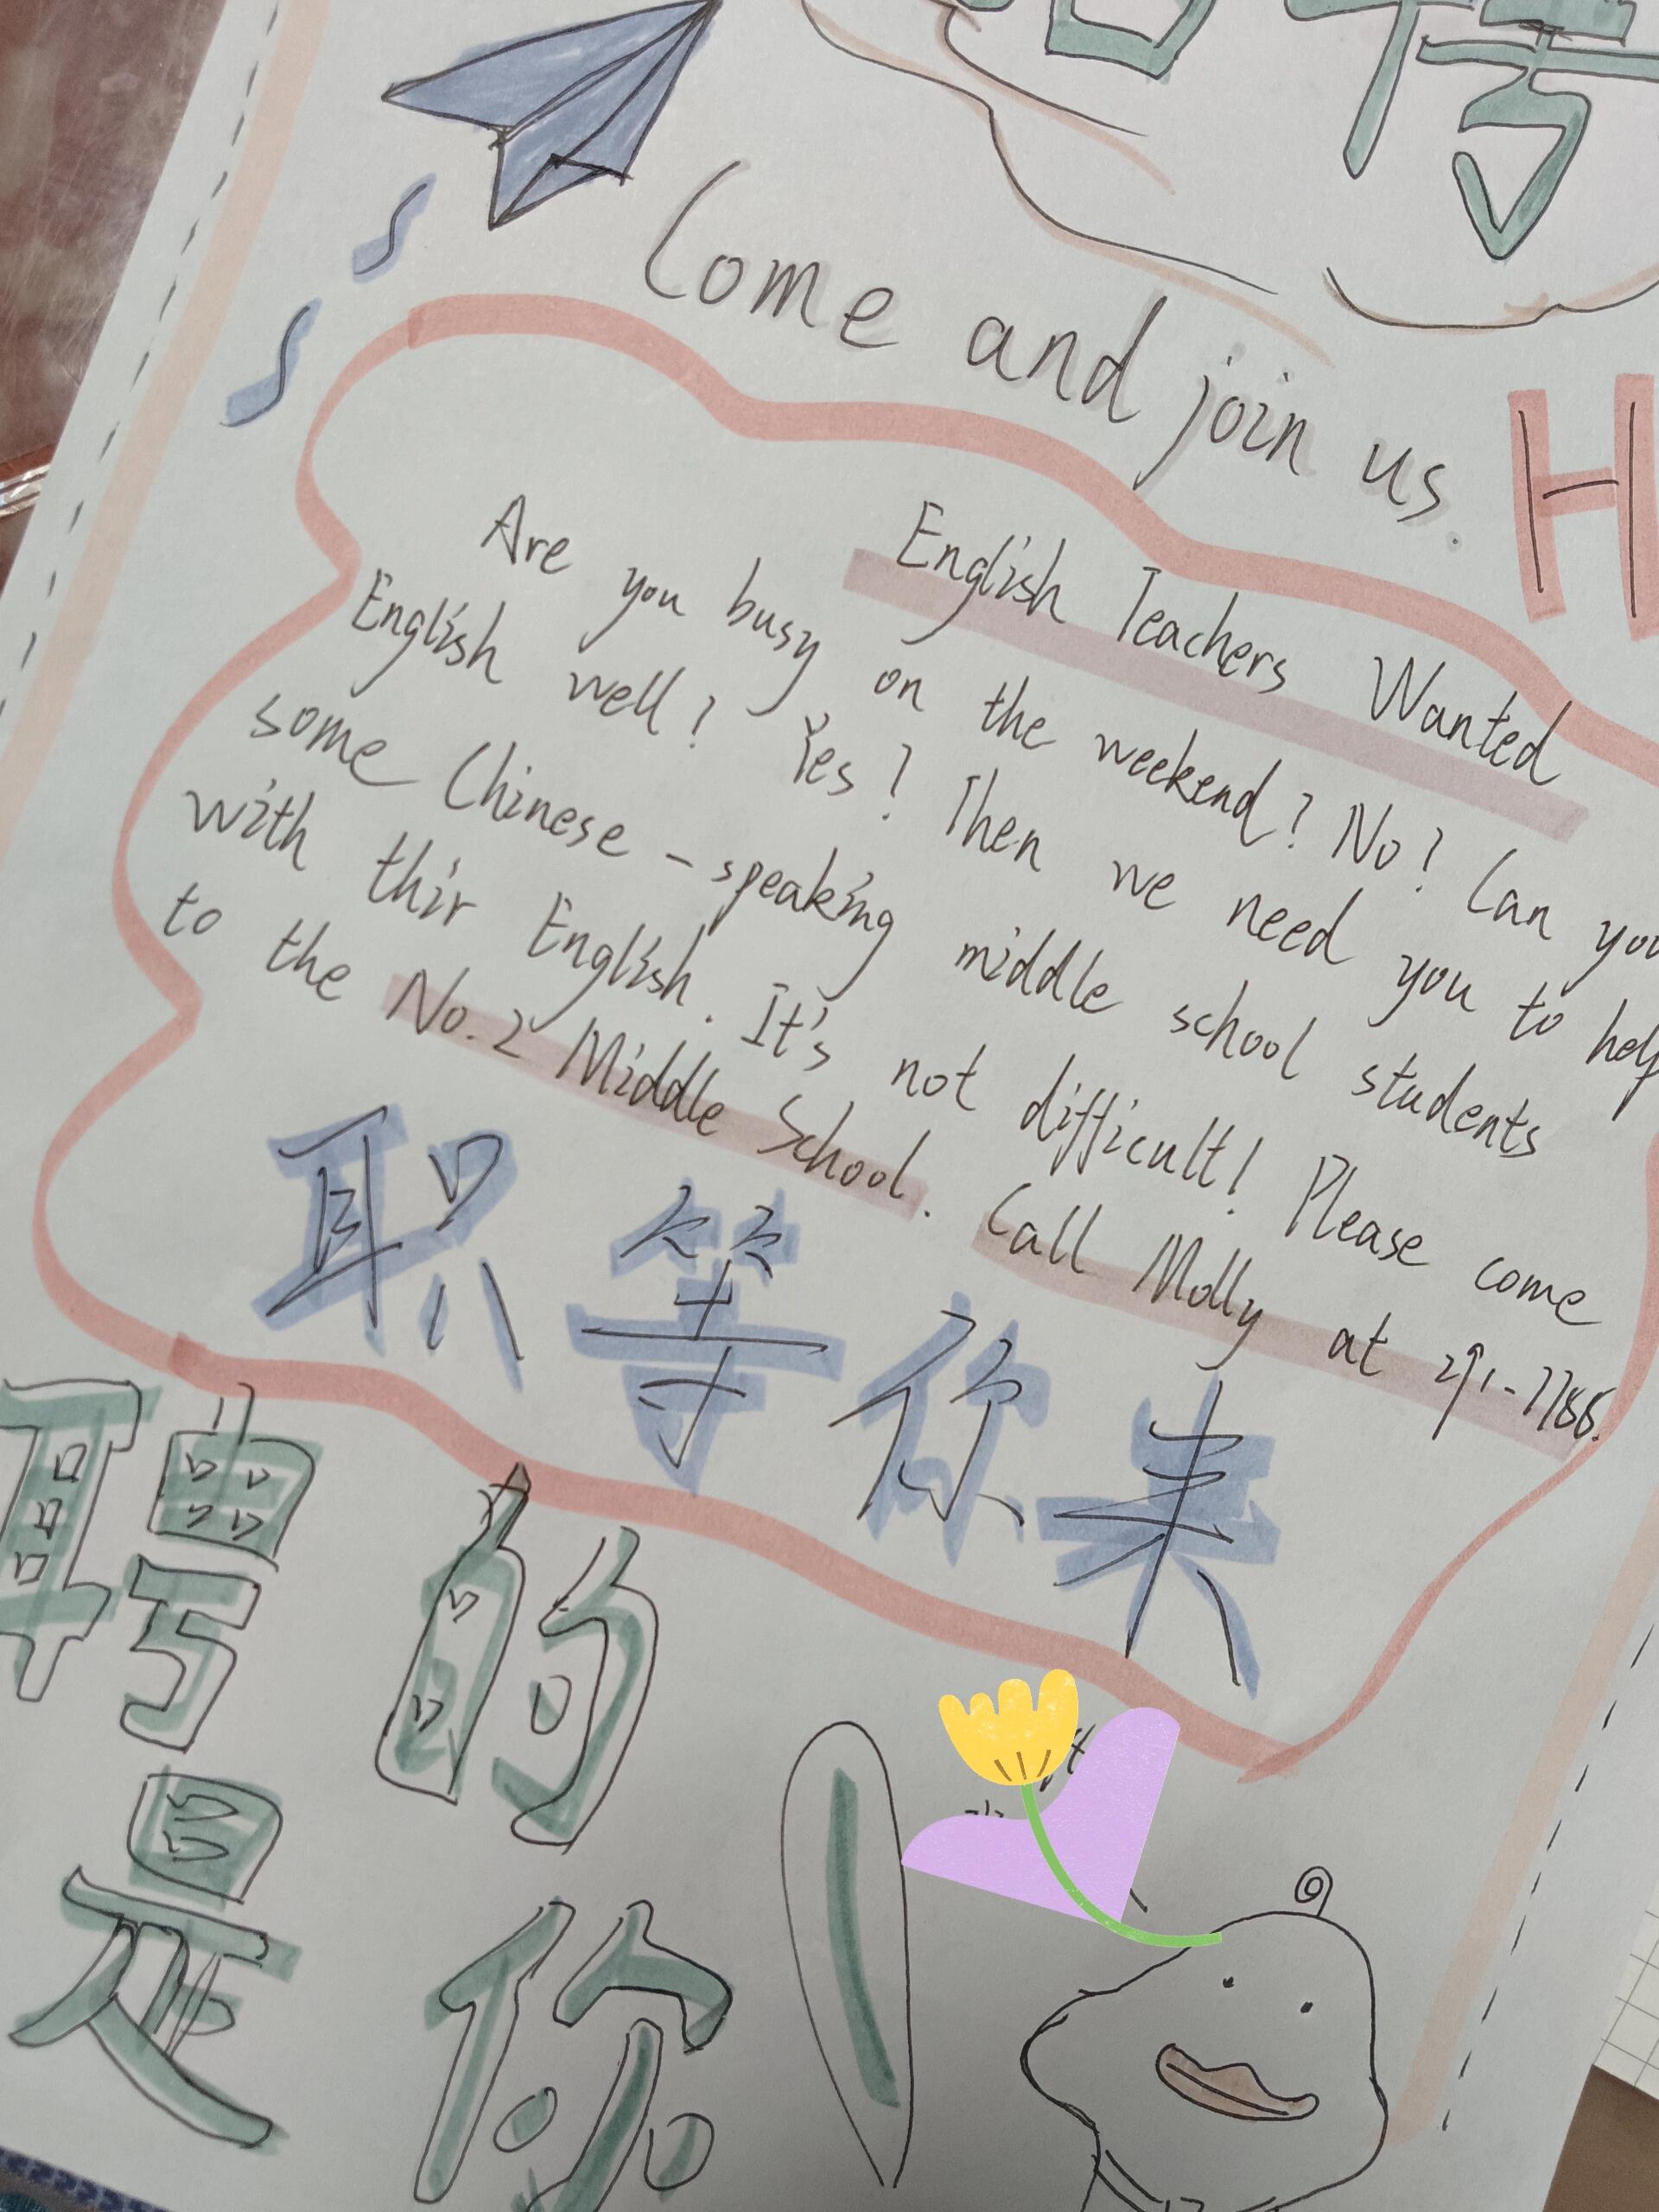 聘
Come and join us.
H
English Teachers Wanted
Are you busy on the weekend? No! Can you
English well? Yes! Then we need you to help
some Chinese-speaking middle school students
with thir English. It's not difficult! Please come
to the No.2 Middle School. Call Molly at
职等你来
聘的
是你!